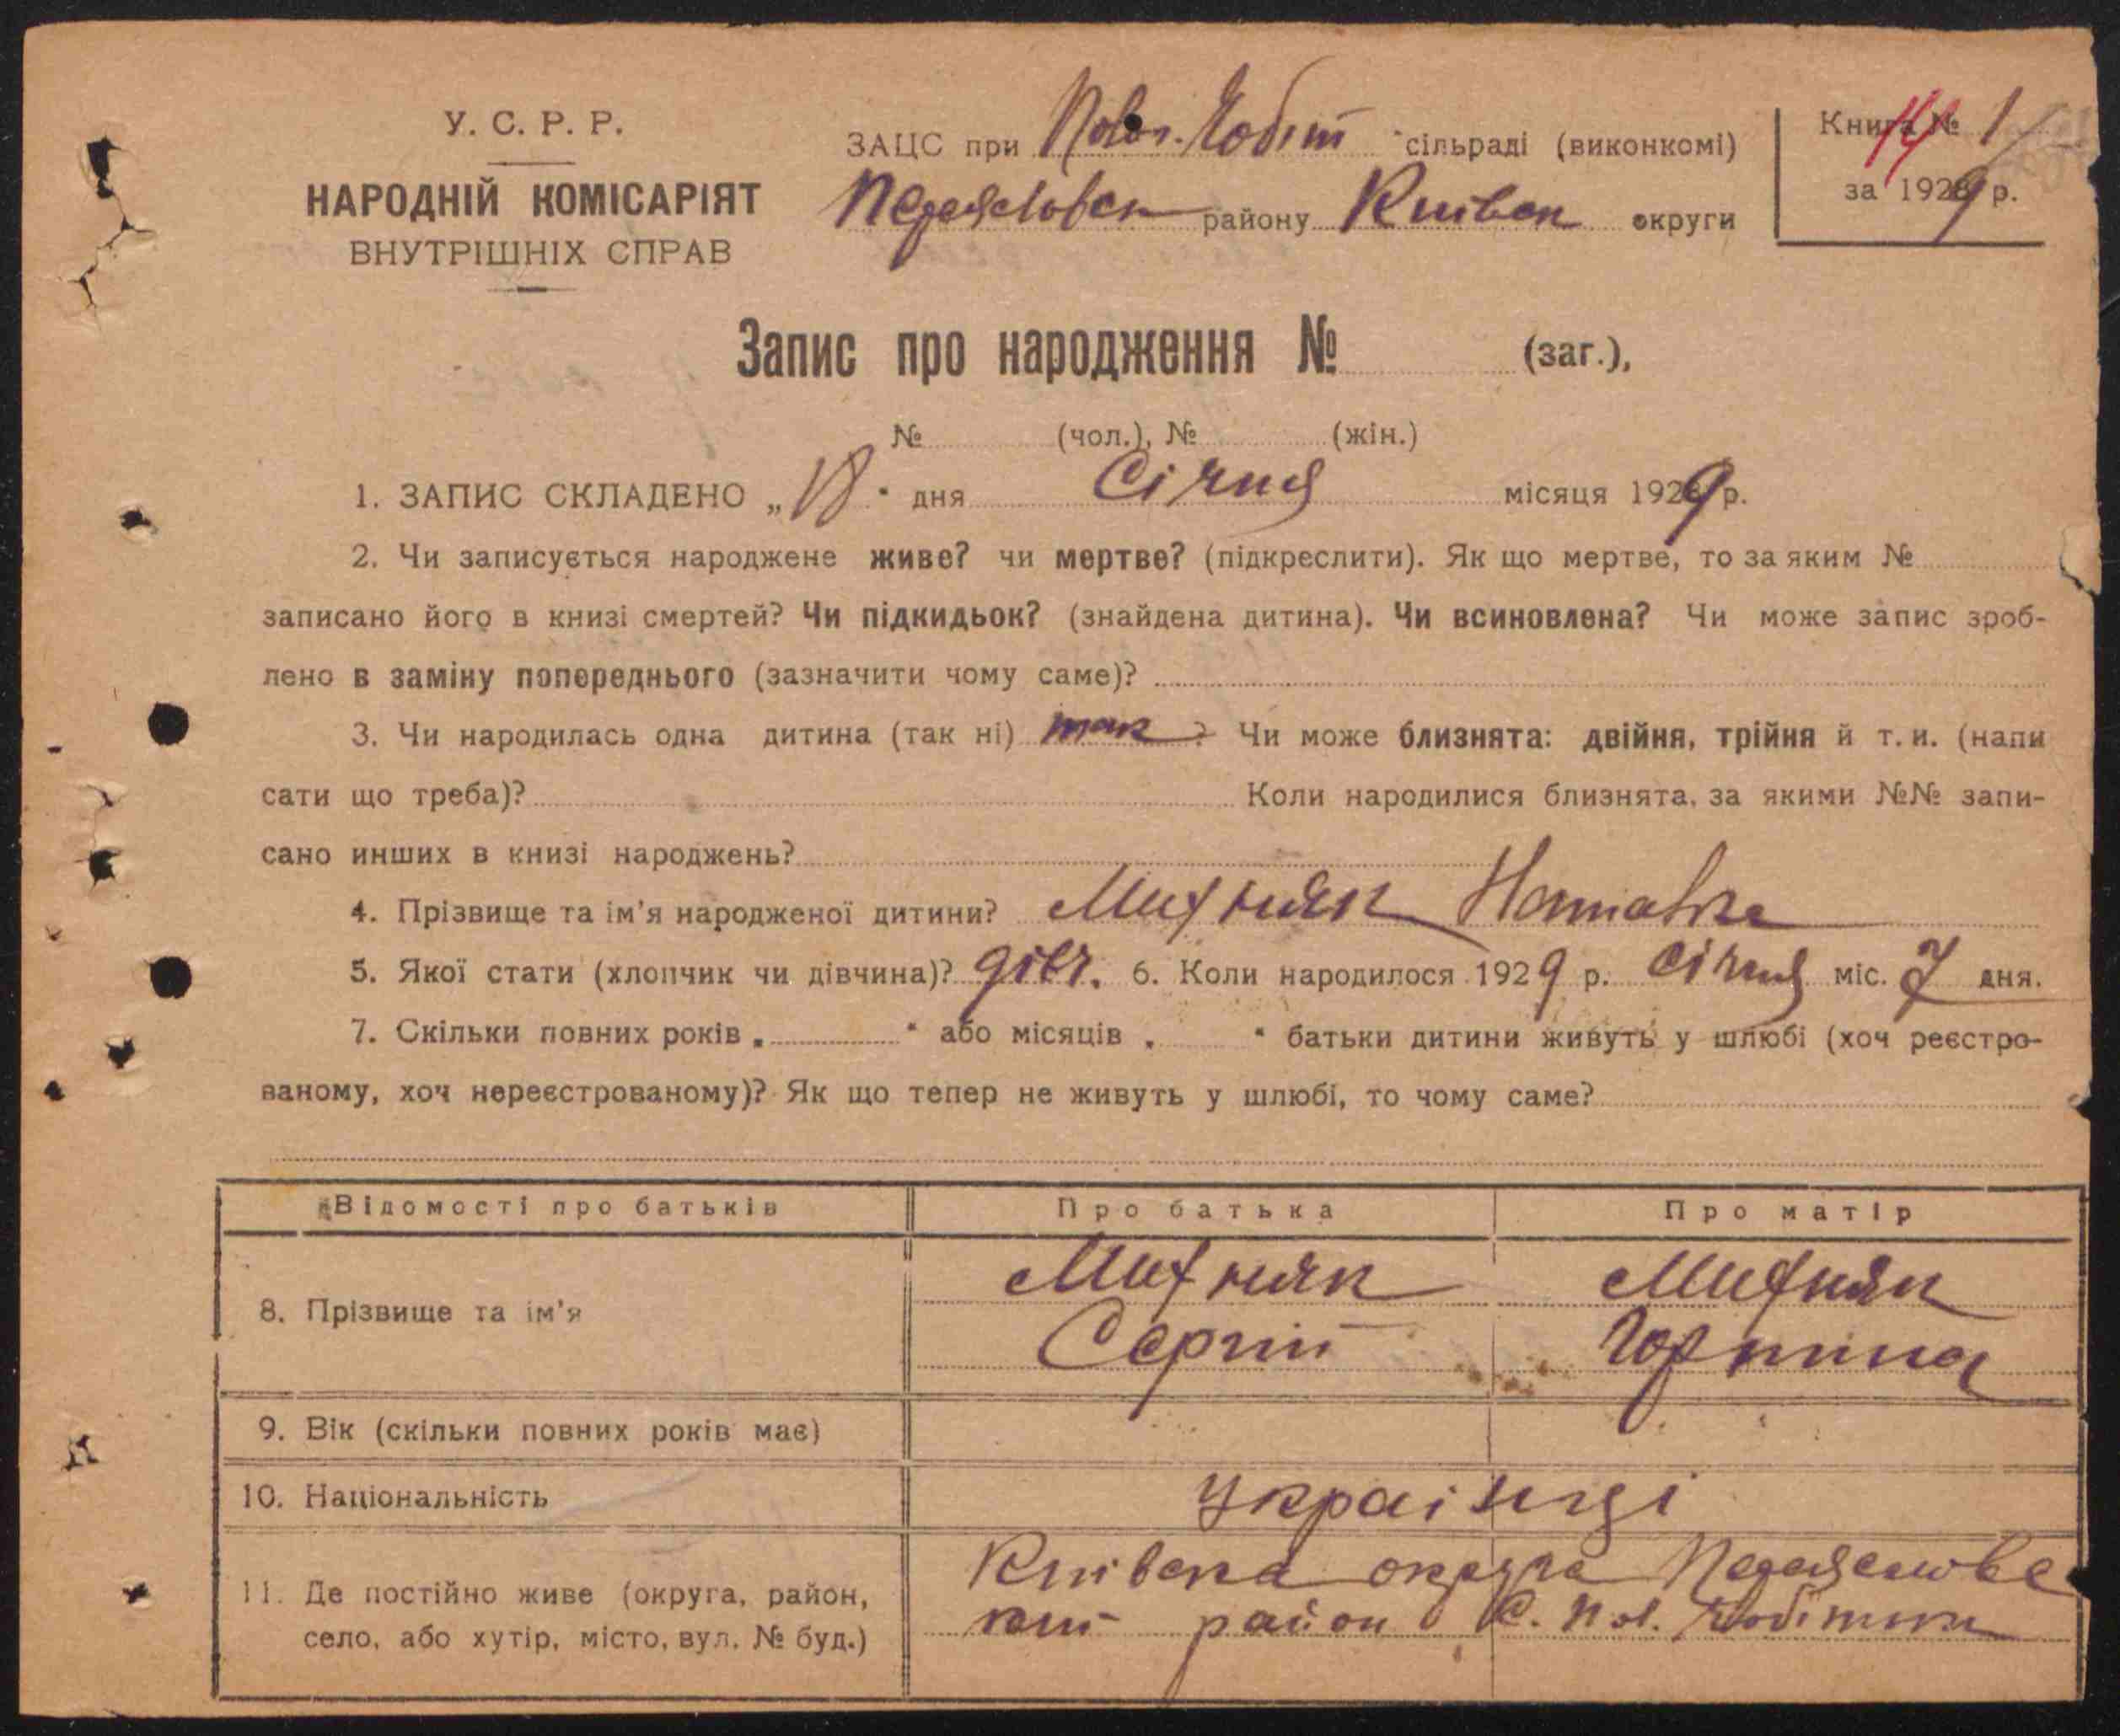 У. С. Р. Р.
НАРОДНІЙ КОМІСАРІЯТ
ВНУТРІШНІХ СПРАВ
ЗАЦС при Чобіт сільраді (виконкомі)
району Київськ округи
Книга № 1
за 1929 р.
Запис про народження № (заг.),
№ (чол.), № (жін.)
1. ЗАПИС СКЛАДЕНО „ " дня Січня місяця 1929 р.
2. Чи записується народжене живе? чи мертве? (підкреслити). Як що мертве, то за яким №
записано його в книзі смертей? Чи підкидьок? (знайдена дитина). Чи всиновлена? Чи може запис зроб-
лено в заміну попереднього (зазначити чому саме)?
3. Чи народилась одна дитина (так ні) так ? Чи може близнята: двійня, трійня й т. и. (напи
сати що треба)? Коли народилися близнята, за якими №№ запи-
сано инших в книзі народжень?
4. Прізвище та ім'я народженої дитини? Михняк Наталка
5. Якої стати (хлопчик чи дівчина)? дівч. 6. Коли народилося 1929 р. Січня міс. 7 дня.
7. Скільки повних років „ " або місяців „ " батьки дитини живуть у шлюбі (хоч реєстро-
ваному, хоч нереєстрованому)? Як що тепер не живуть у шлюбі, то чому саме?
Відомості про батьків Про батька Про матір
8. Прізвище та ім'я
Михняк Михняк
Сергій Горпина
9. Вік (скільки повних років має)
10. Національність Українці
11. Де постійно живе (округа, район,
село, або хутір, місто, вул. № буд.)
Київська округа
район С.